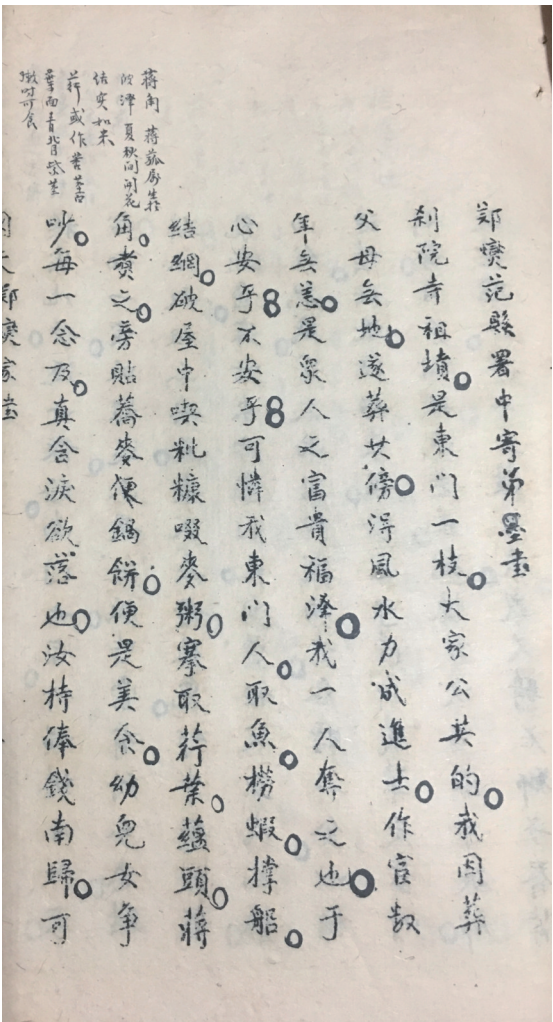 鄭燮范縣署中寄弟墨書
刹院寺祖墳是東門一枝大家公共的我因葬
父母無地遂葬其傍得風水力成進士作宦數
年無恙是衆人之富貴福澤我一人奪之也于
心安乎不安乎可憐我東門人取魚撈蝦撑船
結網破屋中喫粃糠啜麥粥搴取荇葉蘊頭蔣
角煮之旁貼蕎麥便鍋餅便是美食幼兒女爭
吵每一念及真含淚欲落也汝持俸錢南歸可
蔣角 蔣菰屬生於
陂澤夏秋间開花
结实如米
荇或作莕莖白
葉面青背紫莖
嫩时可食